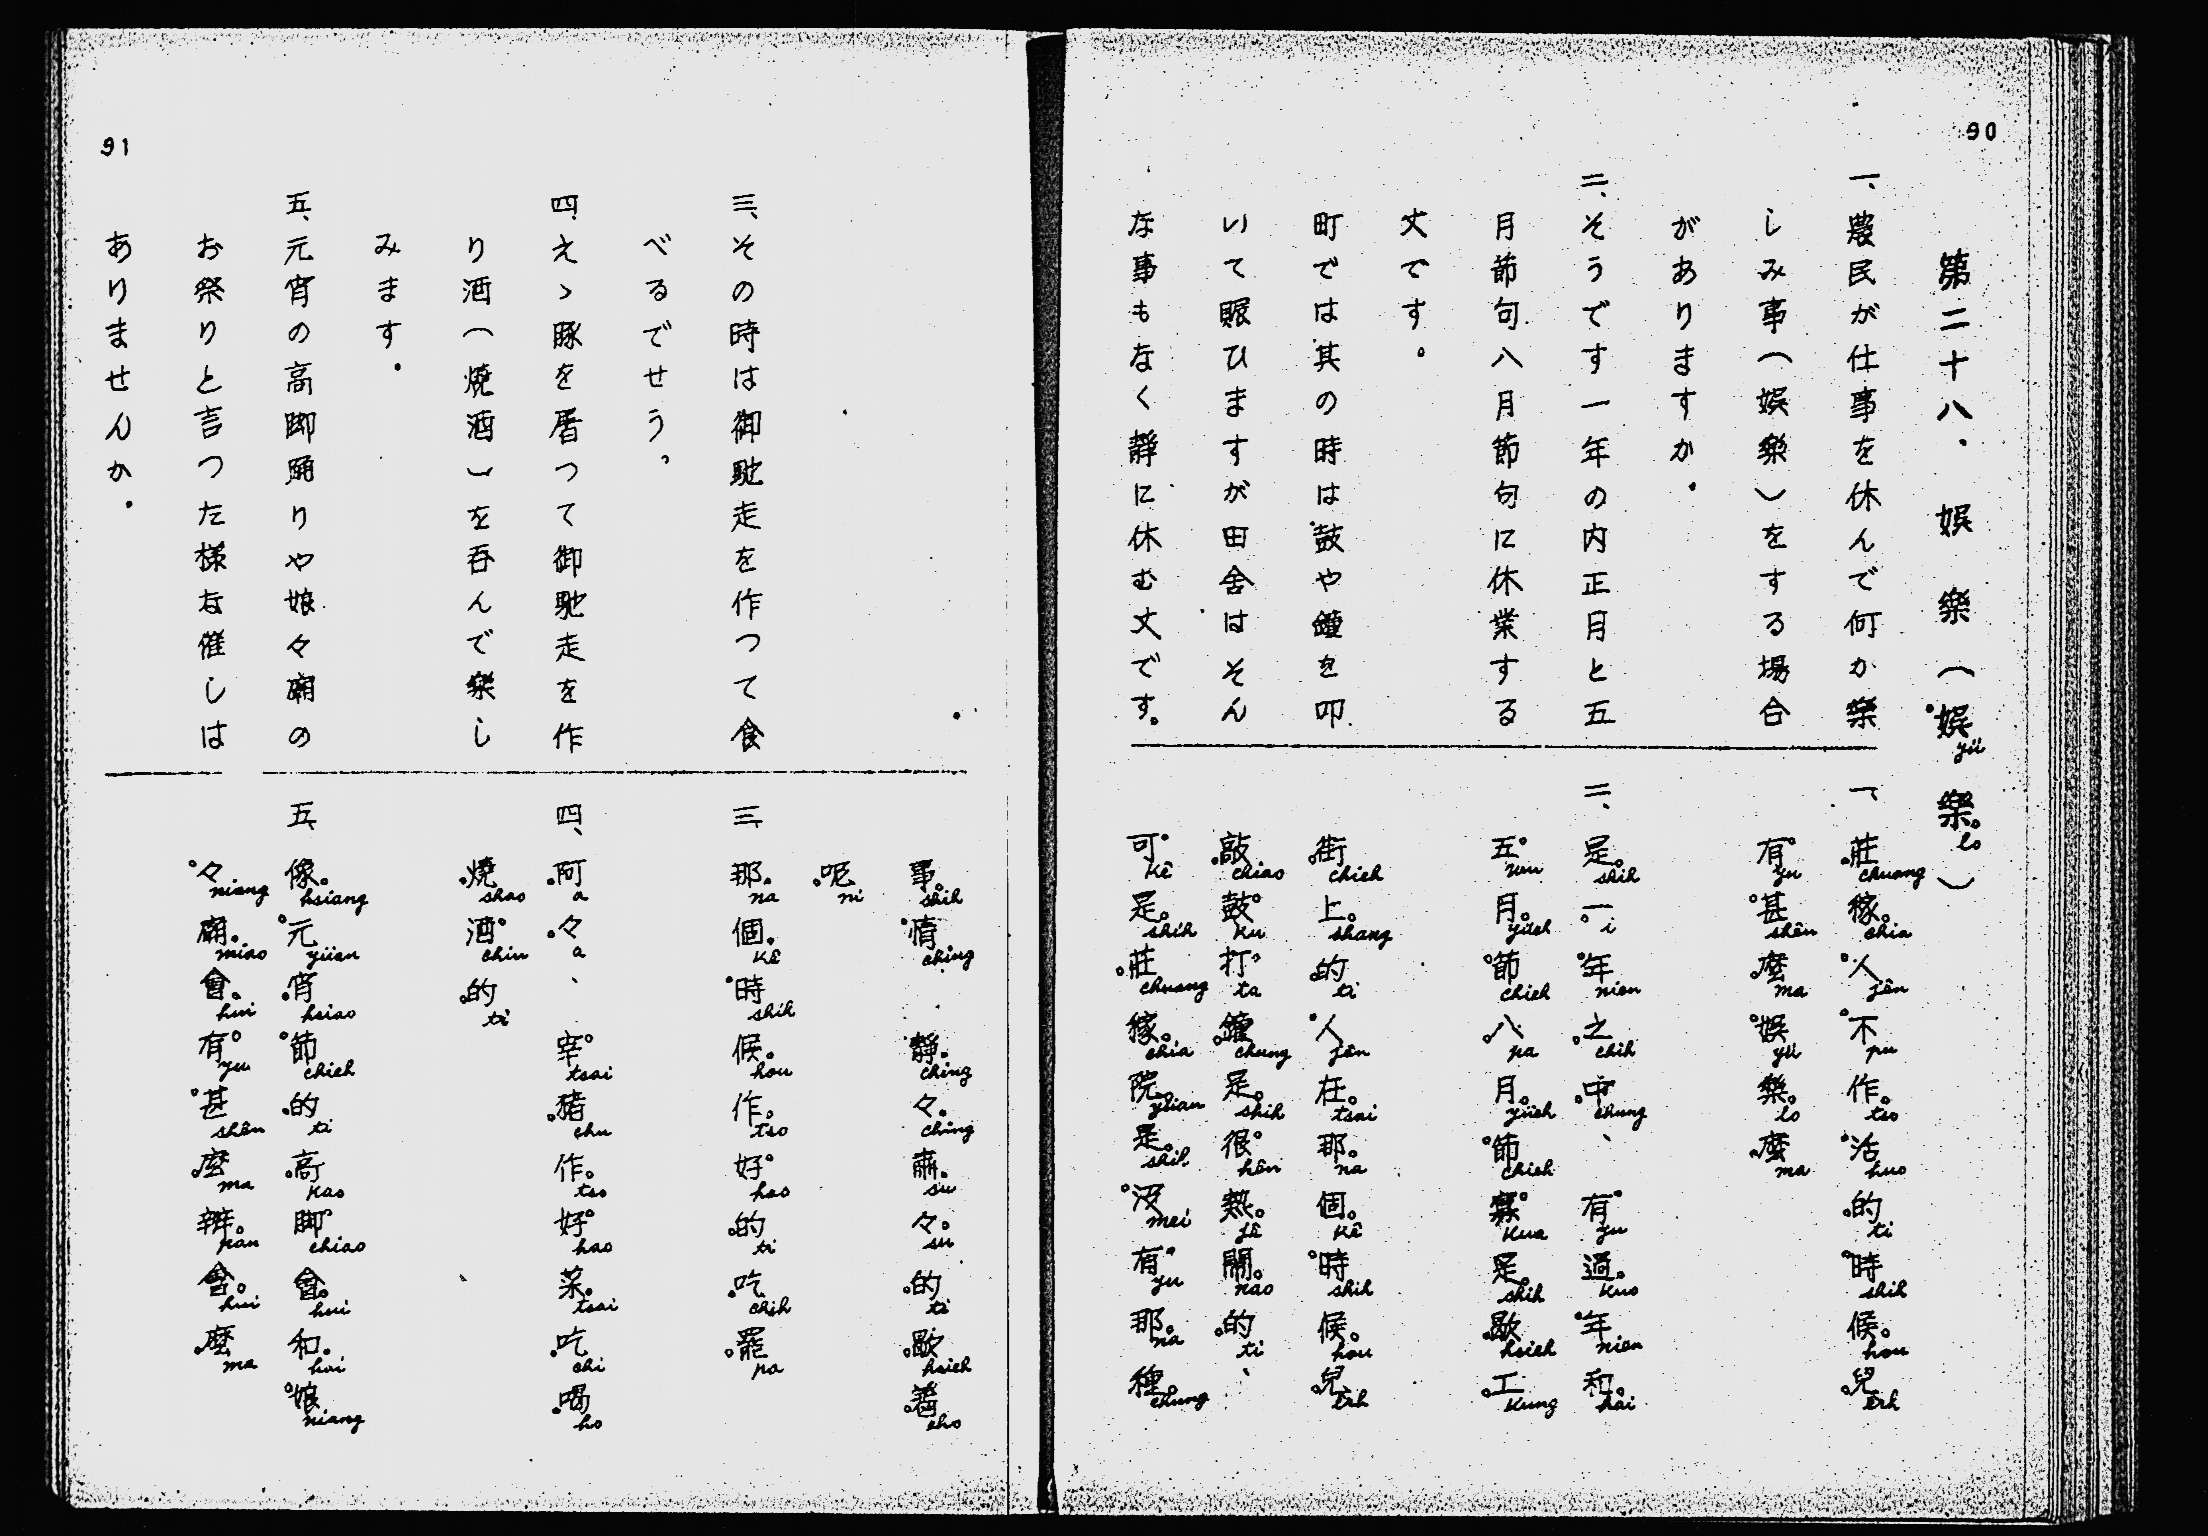 90
第二十八、娯樂(娯樂)
yü lo
一、農民が仕事を休んで何か樂
しみ事(娯樂)をする場合
がありますか。
二、そうです一年の内正月と五
月節句八月節句に休業する
丈です。
町では其の時は鼓や鐘を叩
いて賑ひますが田舎はそん
な事もなく静に休む丈です。
一、莊稼人不作活的時候兒
chuang chia jên pu tso huo ti shih hou êrh
有甚麼娯樂麼
yu shên ma yü lo ma
二、是一年之中、有過年和
shih i nien chih chung yu kuo nien hai
五月節八月節寡是歇工
wu yüeh chieh pa yüeh chieh kua shih hsieh kung
街上的人在那個時候兒
chieh shang ti jên tsai na kê shih hou êrh
敲鼓打鐘是很熱鬧的、
chiao ku ta chung shih hên jê nao ti
可是莊稼院是没有那種
kê shih chuang chia yüan shih mei yu na chung
91
三、その時は御馳走を作つて食
べるでせう、
四、えゝ豚を屠つて御馳走を作
り酒(燒酒)を呑んで樂し
みます。
五、元宵の高脚踊りや娘々廟の
お祭りと言つた様な催しは
ありませんか。
事情静々肅々的歇着
shih ching ching ching su su ti hsieh cho
呢
ni
三、那個時候作好的吃罷
na kê shih hou tso hao ti chih pa
四、阿々、宰猪作好菜吃喝
a a tsai chu tso hao tsai chi ho
燒酒的
shao chiu ti
五、像元宵節的高脚會和娘
hsiang yüan hsiao chieh ti kao chiao hui hai niang
々廟會有甚麼辦會麼
niang miao hui yu shên ma pan hui ma